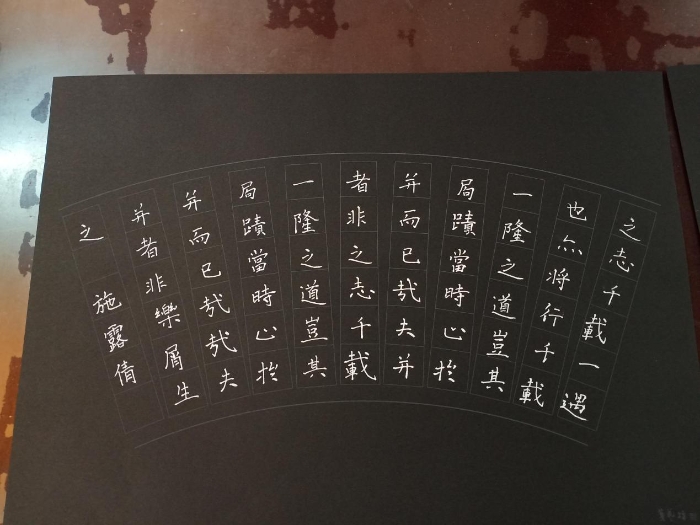 之志千載一遇
也亦将行千載
一隆之道豈其
局蹟當時心於
并而已哉夫并
者非之志千載
一隆之道豈其
局蹟當時心於
并而已哉哉夫
并者非樂屑生
之
施露倩